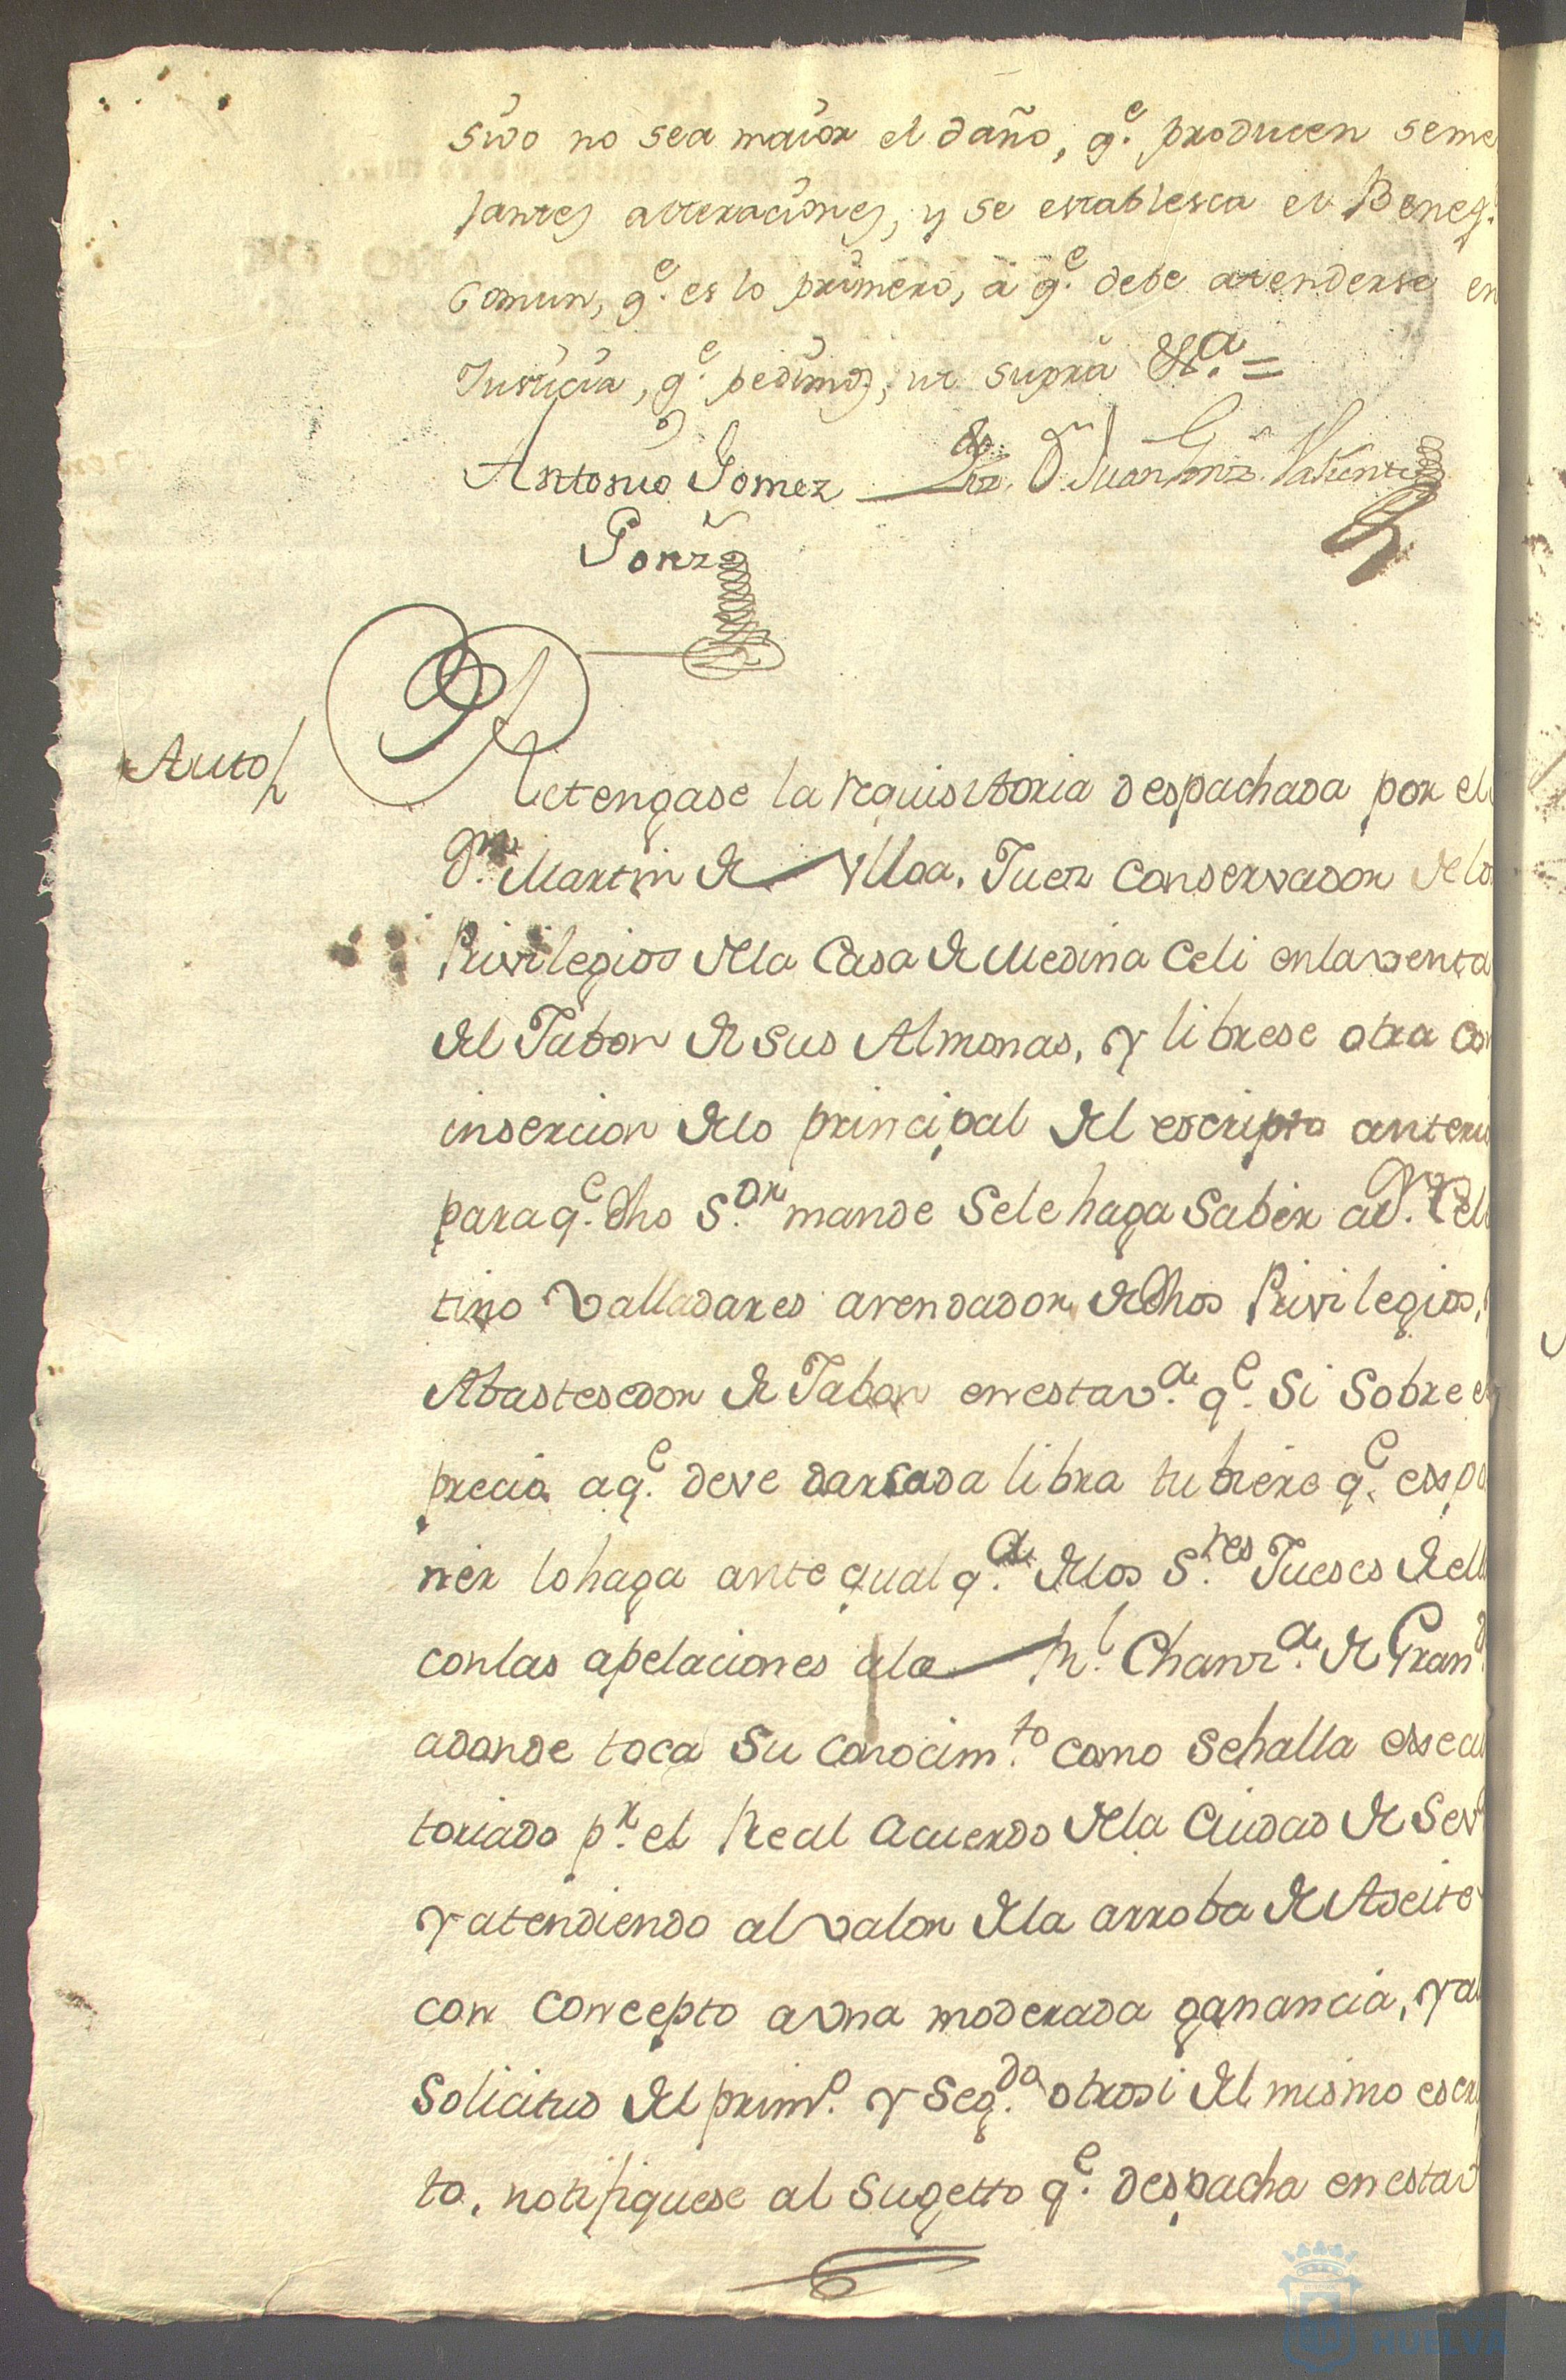 sivo no sea maior el daño, q.e producen seme
jantes alteraciones, y se establesca el Benef.
Comun, q.e es lo primero, á q.e debe atenderse en
Justicia, q.e pedimos, ut supra &.a =
Antonio Gomez Liz. D.n Juan Valiente
Ponze
Auto
Retengase la requisitoria despachada por el
D.n Martin de Vlloa. Juez Conservador de lo
Privilegios dela Casa de Medina Celi enla venta
del Jabon de sus Almonas, y librese otra con
insercion delo principal del escripto anteri
para q.e dho S.or mande se le haga saber a D.n Cele
tino Valladares arendador de dhos Privilegios,
Abastesedor de Jabon en esta v.a q.e si sobre el
precio aq.e deve dar cada libra tubiere q.e espo
ner lo haga ante qualq.a delos S.res Jueses de ell
con las apelaciones ala R.l Chanz.a de Gran.d
adonde toca su conocim.to como se halla essecu
toriado p.r el Real Acuerdo dela Ciudad de Sev
y atendiendo al valor dela arroba de Aseite
con concepto a vna moderada ganancia, y al
solicitud del prim.o y seg.do otrosi del mismo escri
to, notifiquese al Sugetto q.e despacha en esta v
HUELVA